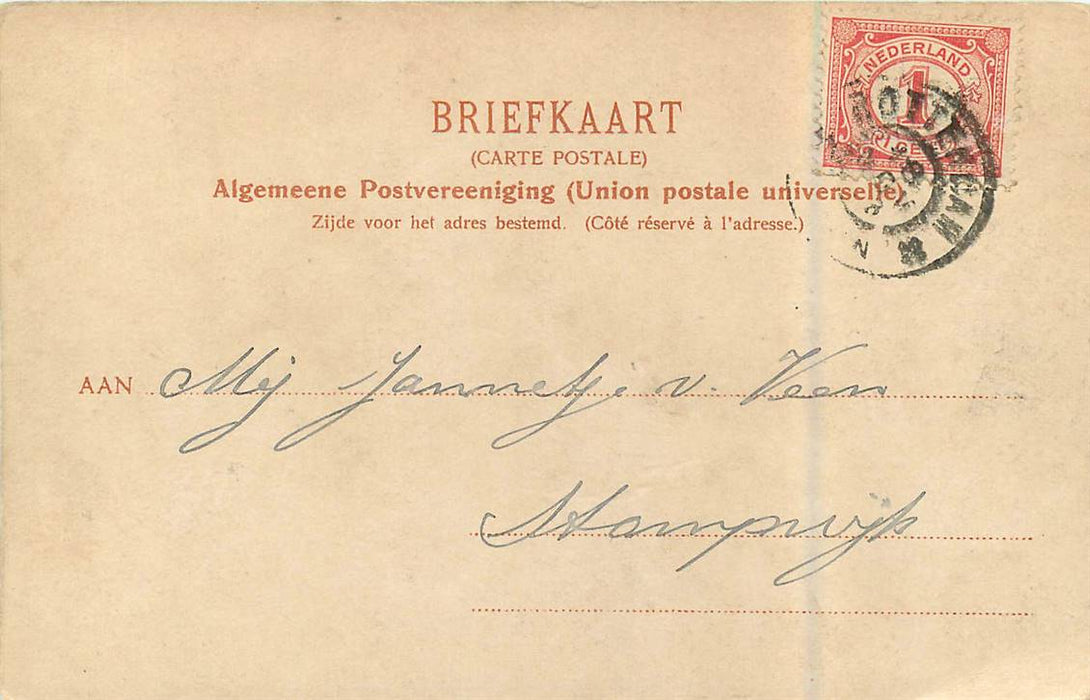 NEDERLAND
1
BRIEFKAART
(CARTE POSTALE)
Algemeene Postvereeniging (Union postale universelle)
Zijde voor het adres bestemd. (Côté réservé à l'adresse.)
AAN Mej Jannetje v. Veen
Stompwijk